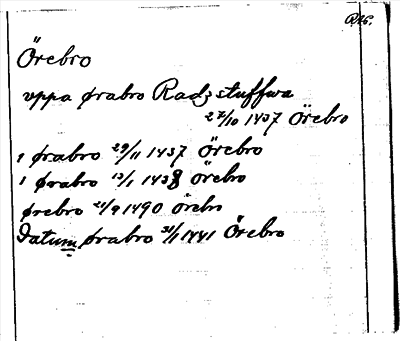 Örebro
uppa ørabro Radzstuffwa
27/10 1437 Örebro
i ørabro 29/11 1437 Örebro
i ørabro 13/1 1438 Örebro
ørebro 21/9 1490 Örebro
Datum ørabro 31/1 1441 Örebro